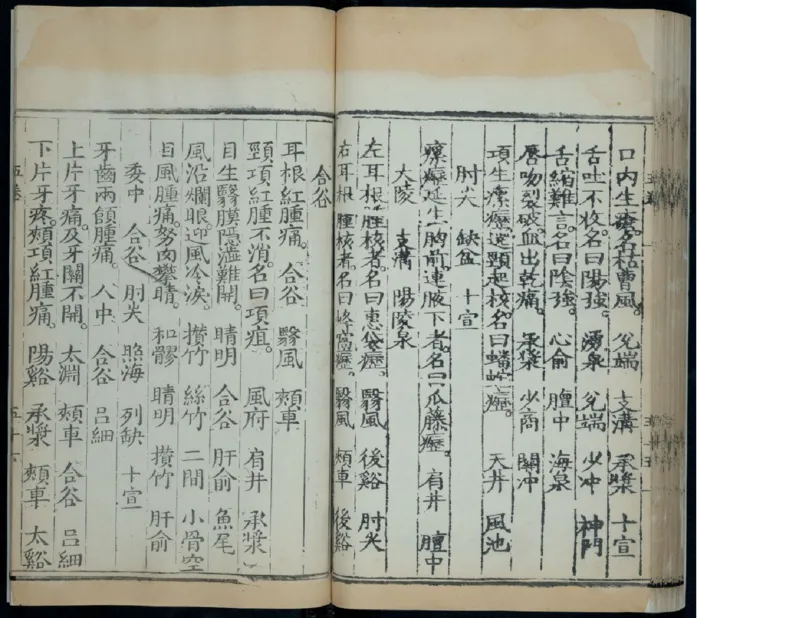 口内生瘡名枯曹風。 兊端 支溝 承漿 十宣
舌吐不收。名曰陽強。 湧泉 兊端 少冲 神門
舌縮難言。名曰陰強。 心俞 膻中 海泉
唇吻裂破。血出乾痛。 承漿 少商 關冲
項生瘰癧。遶頸起核。名曰蟠蛇癧。 天井 風池
肘尖 缺盆 十宣
瘰癧延生胸前。連腋下者。名曰瓜藤癧。 肩井 膻中
大陵 支溝 陽陵泉
左耳根腫核者。名曰惠袋癧。 翳風 後谿 肘尖
右耳根腫核者。名曰蜂窩癧。 翳風 頰車 後谿
合谷
耳根紅腫痛。 合谷 翳風 頰車
頸項紅腫不消。名曰項疽。 風府 肩井 承漿
目生翳膜隱澁難開。 睛明 合谷 肝俞 魚尾
風沿爛眼迎風冷淚。 攅竹 絲竹 二間 小骨空
目風腫痛努肉攀睛。 和髎 睛明 攅竹 肝俞
委中 合谷 肘尖 照海 列缺 十宣
牙齒兩頷腫痛。 人中 合谷 呂細
上片牙痛。及牙關不開。 太淵 頰車 合谷 呂細
下片牙疼。頰項紅腫痛。 陽谿 承漿 頰車 太谿
五卷
五十六